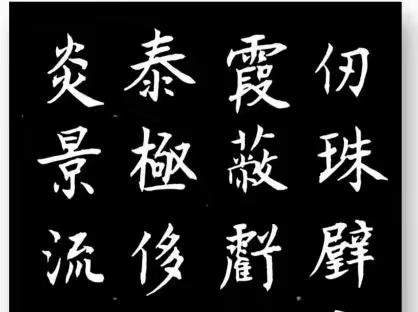 仞珠璧
霞蔽虧
泰極侈
炎景流